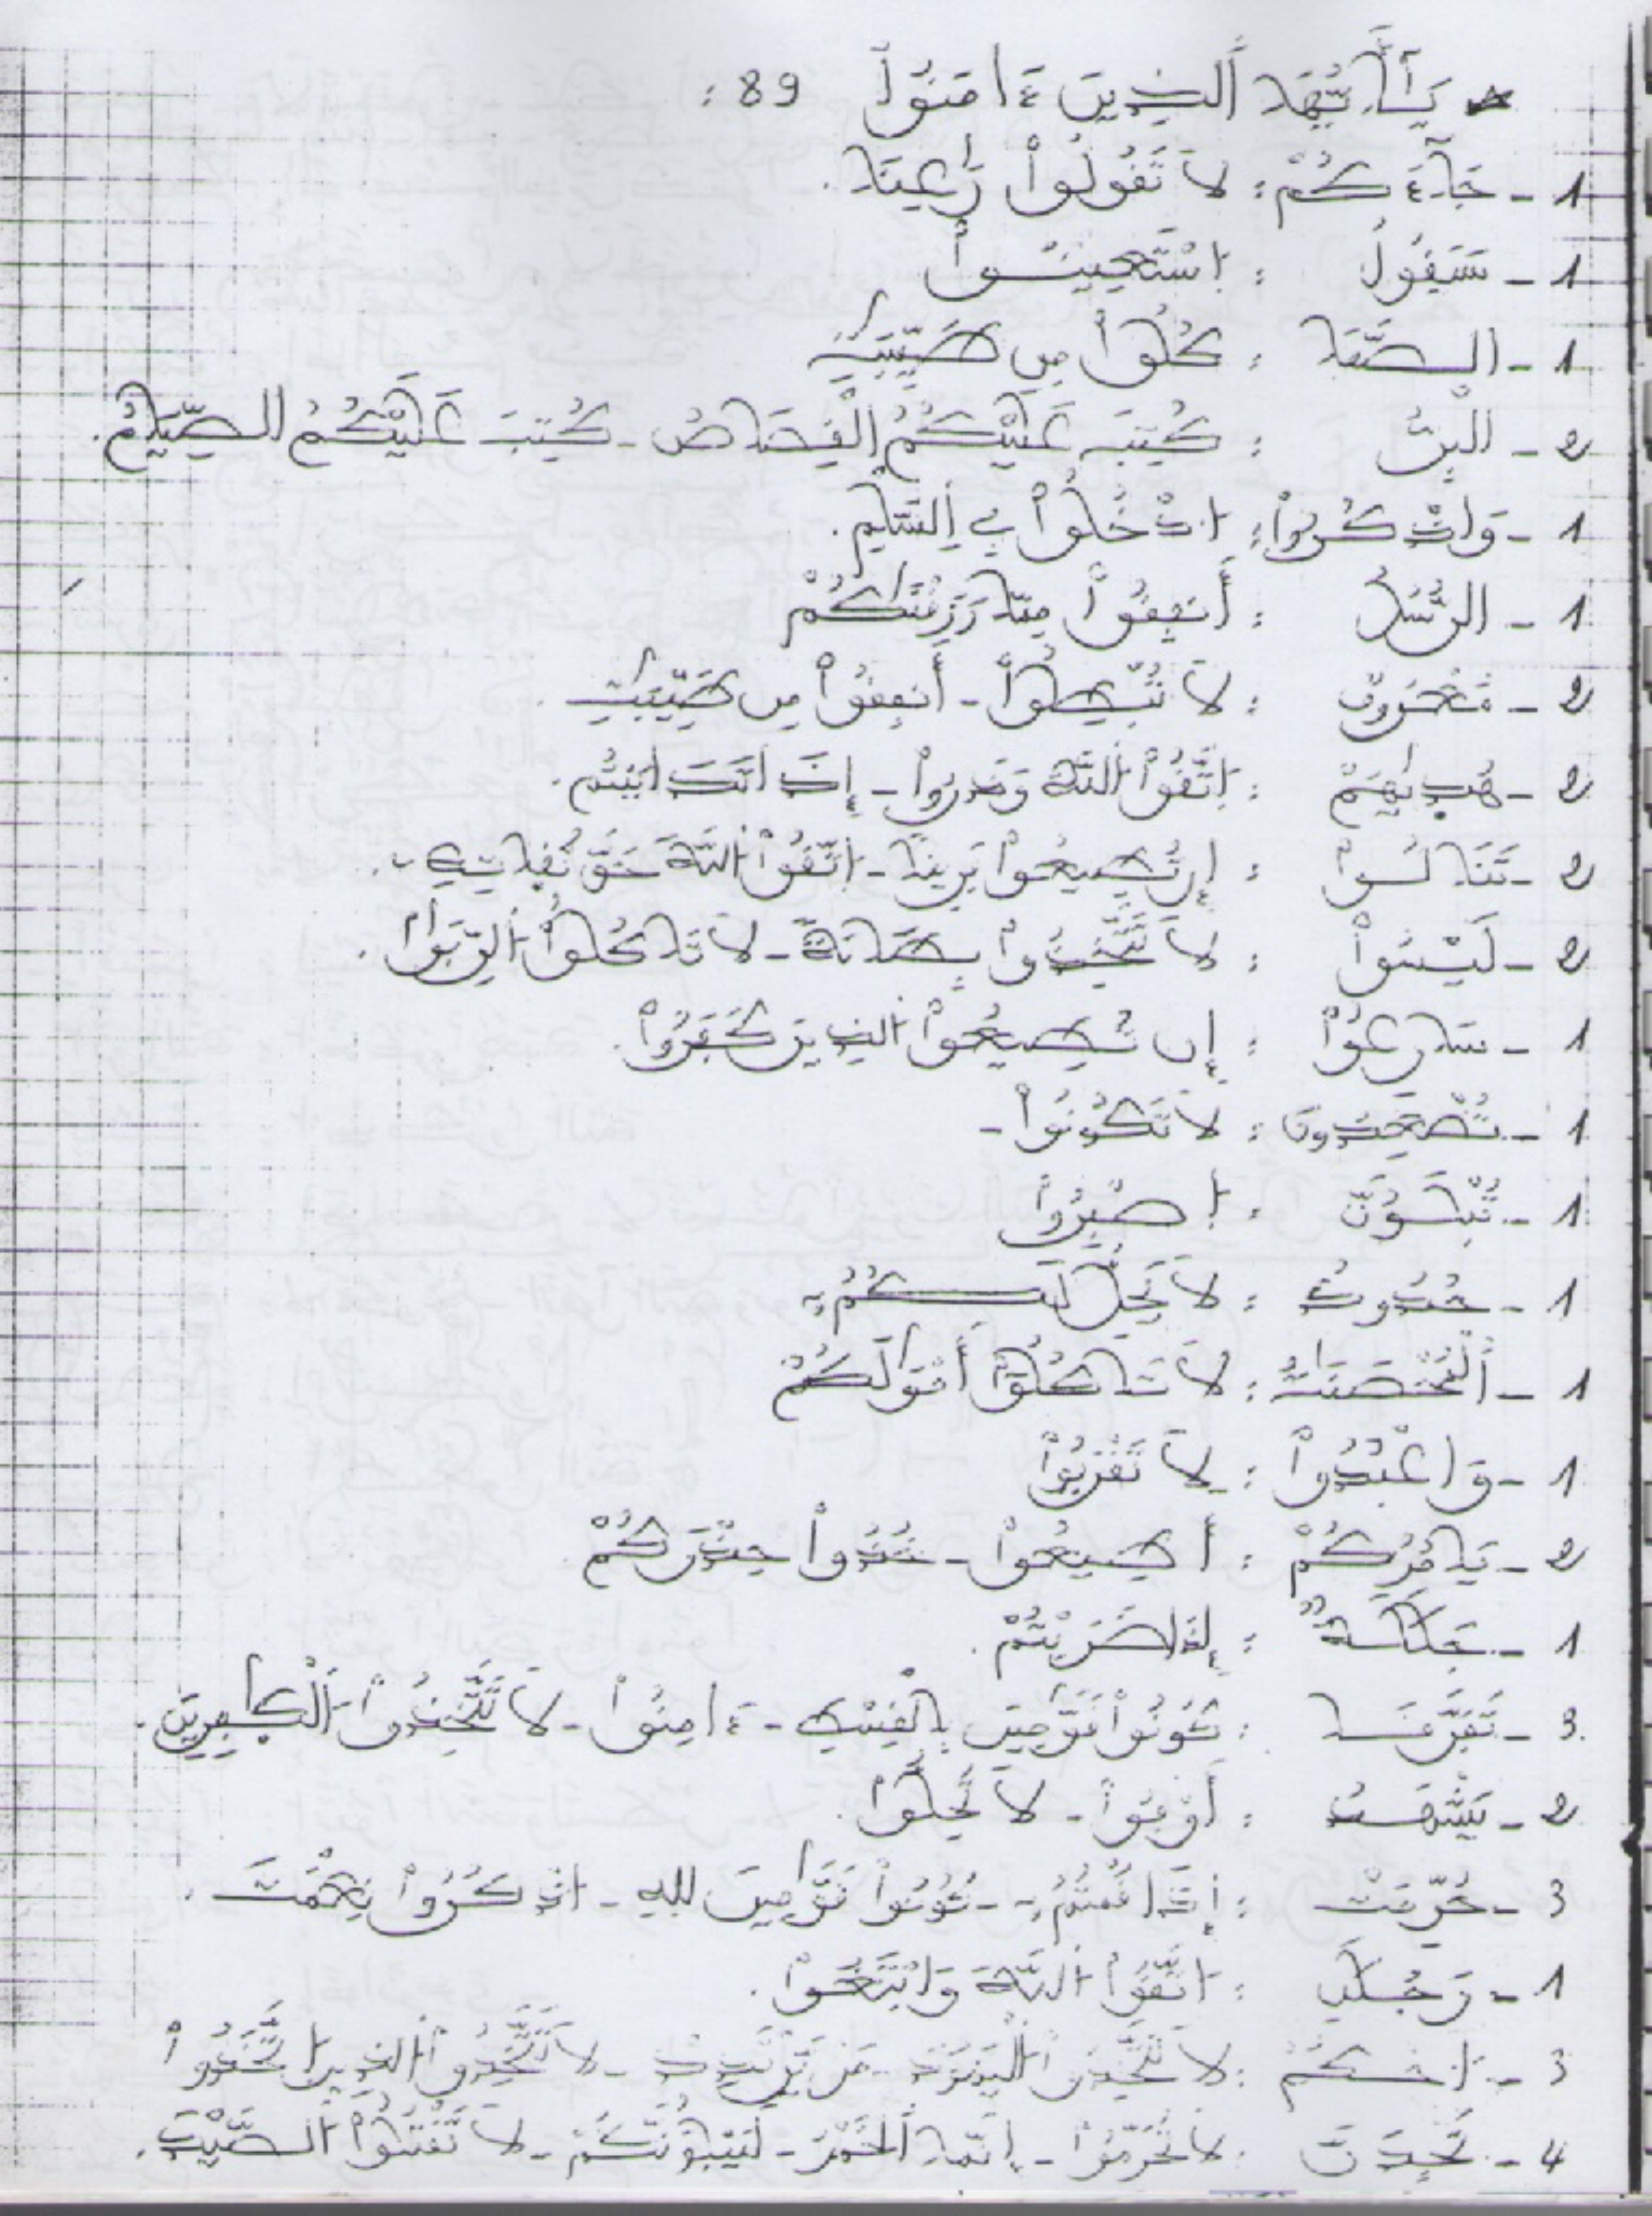 يَٰٓأَيُّهَا اَ۬لذِينَ ءَامَنُواْ 89 :
1 - جَآءَكُمْ : لَا تَقُولُواْ رَٰعِنَا .
1 - سَيَقُولُ : اِ۪سْتَعِينُواْ
1 - الصَّفَا : كُلُواْ مِن طَيِّبَٰتِ
2 - الْبِرُّ : كُتِبَ عَلَيْكُمُ اُ۬لْقِصَاصُ - كُتِبَ عَلَيْكُمُ الصِّيَامُ .
1 - وَاذْكُرُواْ : اُ۟دْخُلُواْ فِے اِ۬لسَّلْمِ .
1 - الرُّسُلُ : أَنفِقُواْ مِمَّا رَزَقْنَٰكُمْ
2 - مَّعْرُوفٌ : لَا تُبْطِلُواْ - أَنفِقُواْ مِن طَيِّبَٰتِ .
2 - هُدٜيٰهُمْ : اِ۪تَّقُواْ اُ۬للَّهَ وَذَرُواْ - إِذَا تَدَايَنتُم .
2 - تَنَالُواْ : إِن تُطِيعُواْ فَرِيقاً - اِ۪تَّقُواْ اُ۬للَّهَ حَقَّ تُقَاتِهِۦ .
2 - لَيْسُواْ : لَا تَتَّخِذُواْ بِطَانَةً - لَا تَاكُلُواْ اُ۬لرِّبَوٰاْ .
1 - سَارِعُوٓاْ : إِن تُطِيعُواْ الذِينَ كَفَرُواْ .
1 - تُصْعِدُونَ : لَا تَكُونُواْ -
1 - تُبْلَوُنَّ : اِ۪صْبِرُواْ
1 - حُدُودُ : لَا يَحِلُّ لَكُمُۥٓ
1 - اَ۬لْمُحْصَنَٰتُ : لَا تَاكُلُوٓاْ أَمْوَٰلَكُمْ
1 - وَاعْبُدُواْ : لَا تَقْرَبُواْ
2 - يَامُرُكُمُۥٓ : أَطِيعُواْ - خُذُواْ حِذْرَكُمْ
1 - : إِذَا ضَرَبْتُمْ .
3 - : كُونُواْ قَوَّٰمِينَ بِالْقِسْطِ - ءَامِنُواْ - لَا تَتَّخِذُواْ اُ۬لْكٰفِرِينَ .
2 - : أَوْفُواْ - لَا تُحِلُّواْ .
3 - حُرِّمَتْ : إِذَا قُمْتُمُۥٓ - كُونُواْ قَوَّٰمِينَ لِلهِ - اُ۟ذْكُرُواْ نِعْمَتَ .
1 - رَجُلَٰنِ : اِ۪تَّقُواْ اُ۬للَّهَ وَابْتَغُوٓاْ .
3 - اَ۟حْكُم : لَا تَتَّخِذُواْ اُ۬لْيَهُودَ - مَنْ يَّرْتَدِدْ - لَا تَتَّخِذُواْ اُ۬لذِينَ اَ۪تَّخَذُواْ
4 - لَتَجِدَنَّ : لَا تُحَرِّمُواْ - إِنَّمَا اَ۬لْخَمْرُ - لَيَبْلُوَنَّكُمُ - لَا تَقْتُلُواْ اُ۬لصَّيْدَ .